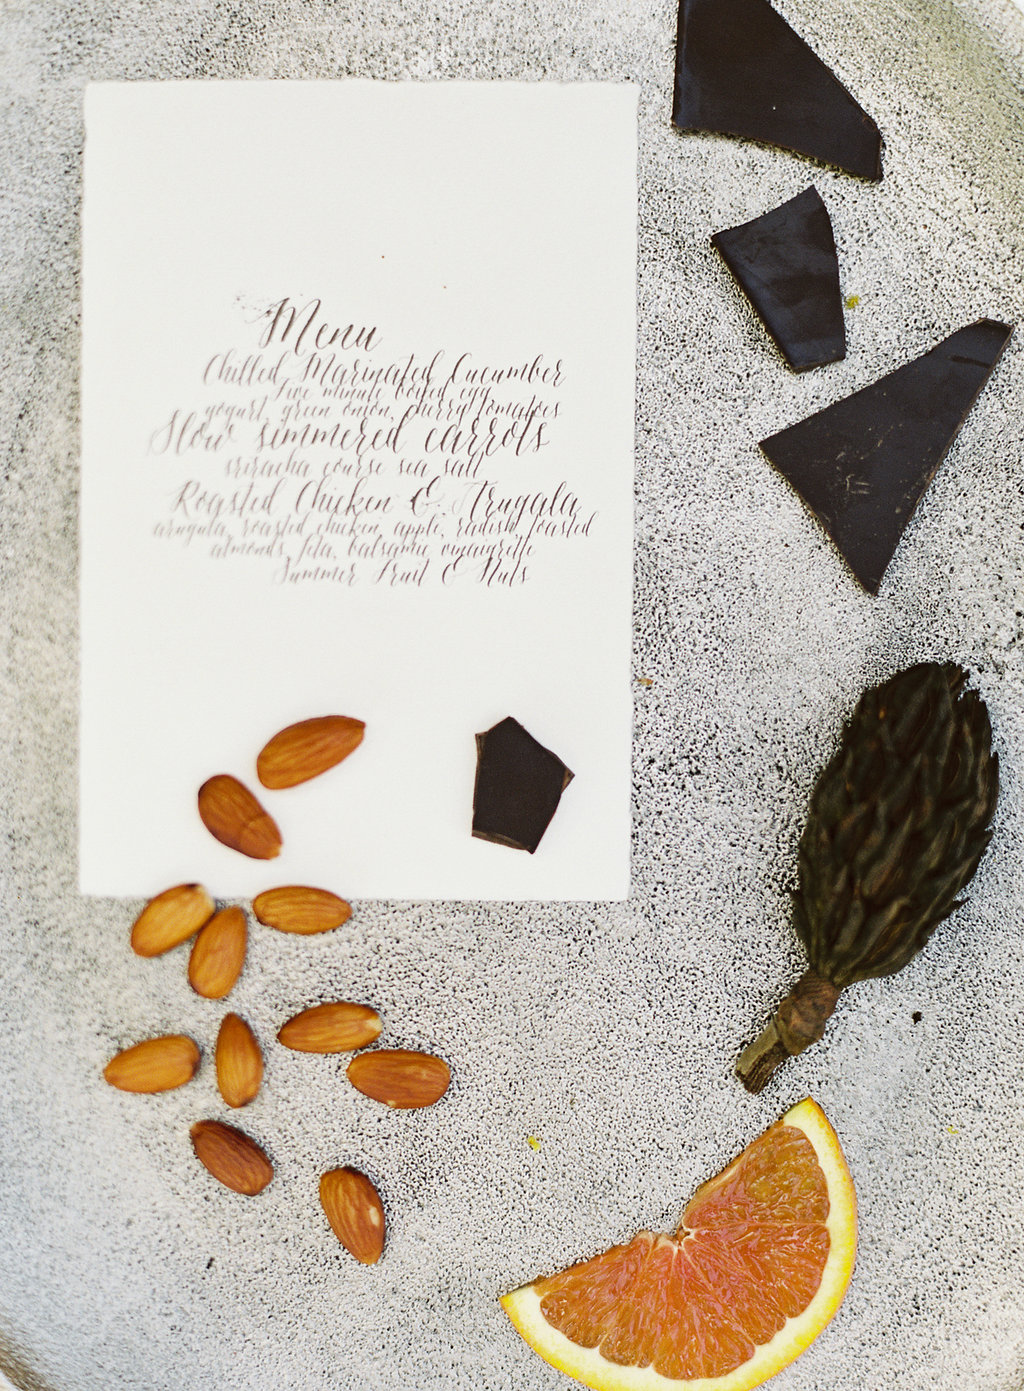 Menu
Chilled Marinated Cucumber
Five minute boiled egg
yogurt, green onion, cherry tomatoes
Slow simmered carrots
sriracha course sea salt
Roasted Chicken & Arugala
arugula, roasted chicken, apple, radish, toasted
almonds, feta, balsamic vinaigrette
Summer Fruit & Nuts